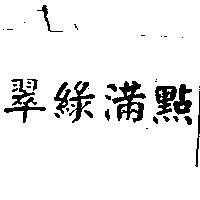 翠綠滿點